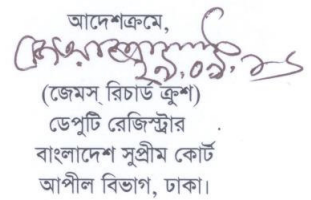 আদেশক্রমে,
২৯.০৯.১১
(জেমস্ রিচার্ড ক্রুশ)
ডেপুটি রেজিস্ট্রার
বাংলাদেশ সুপ্রীম কোর্ট
আপীল বিভাগ, ঢাকা।